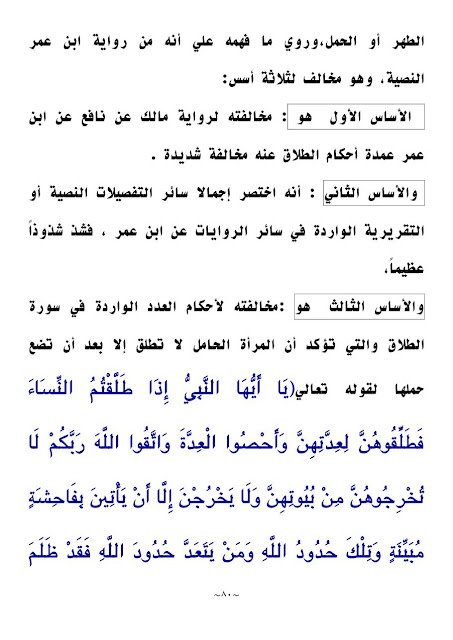 الطهر أو الحمل،وروي ما فهمه علي أنه من رواية ابن عمر
النصية، وهو مخالف لثلاثة أسس:
الأساس الأول هو : مخالفته لرواية مالك عن نافع عن ابن
عمر عمدة أحكام الطلاق عنه مخالفة شديدة .
والأساس الثاني : أنه اختصر إجمالا سائر التفصيلات النصية أو
التقريرية الواردة في سائر الروايات عن ابن عمر ، فشذ شذوذاً
عظيماً،
والأساس الثالث هو :مخالفته لأحكام العدد الواردة في سورة
الطلاق والتي تؤكد أن المرأة الحامل لا تطلق إلا بعد أن تضع
حملها لقوله تعالي(يَا أَيُّهَا النَّبِيُّ إِذَا طَلَّقْتُمُ النِّسَاءَ
فَطَلِّقُوهُنَّ لِعِدَّتِهِنَّ وَأَحْصُوا الْعِدَّةَ وَاتَّقُوا اللَّهَ رَبَّكُمْ لَا
تُخْرِجُوهُنَّ مِنْ بُيُوتِهِنَّ وَلَا يَخْرُجْنَ إِلَّا أَنْ يَأْتِينَ بِفَاحِشَةٍ
مُبَيِّنَةٍ وَتِلْكَ حُدُودُ اللَّهِ وَمَنْ يَتَعَدَّ حُدُودَ اللَّهِ فَقَدْ ظَلَمَ
~٨٠~